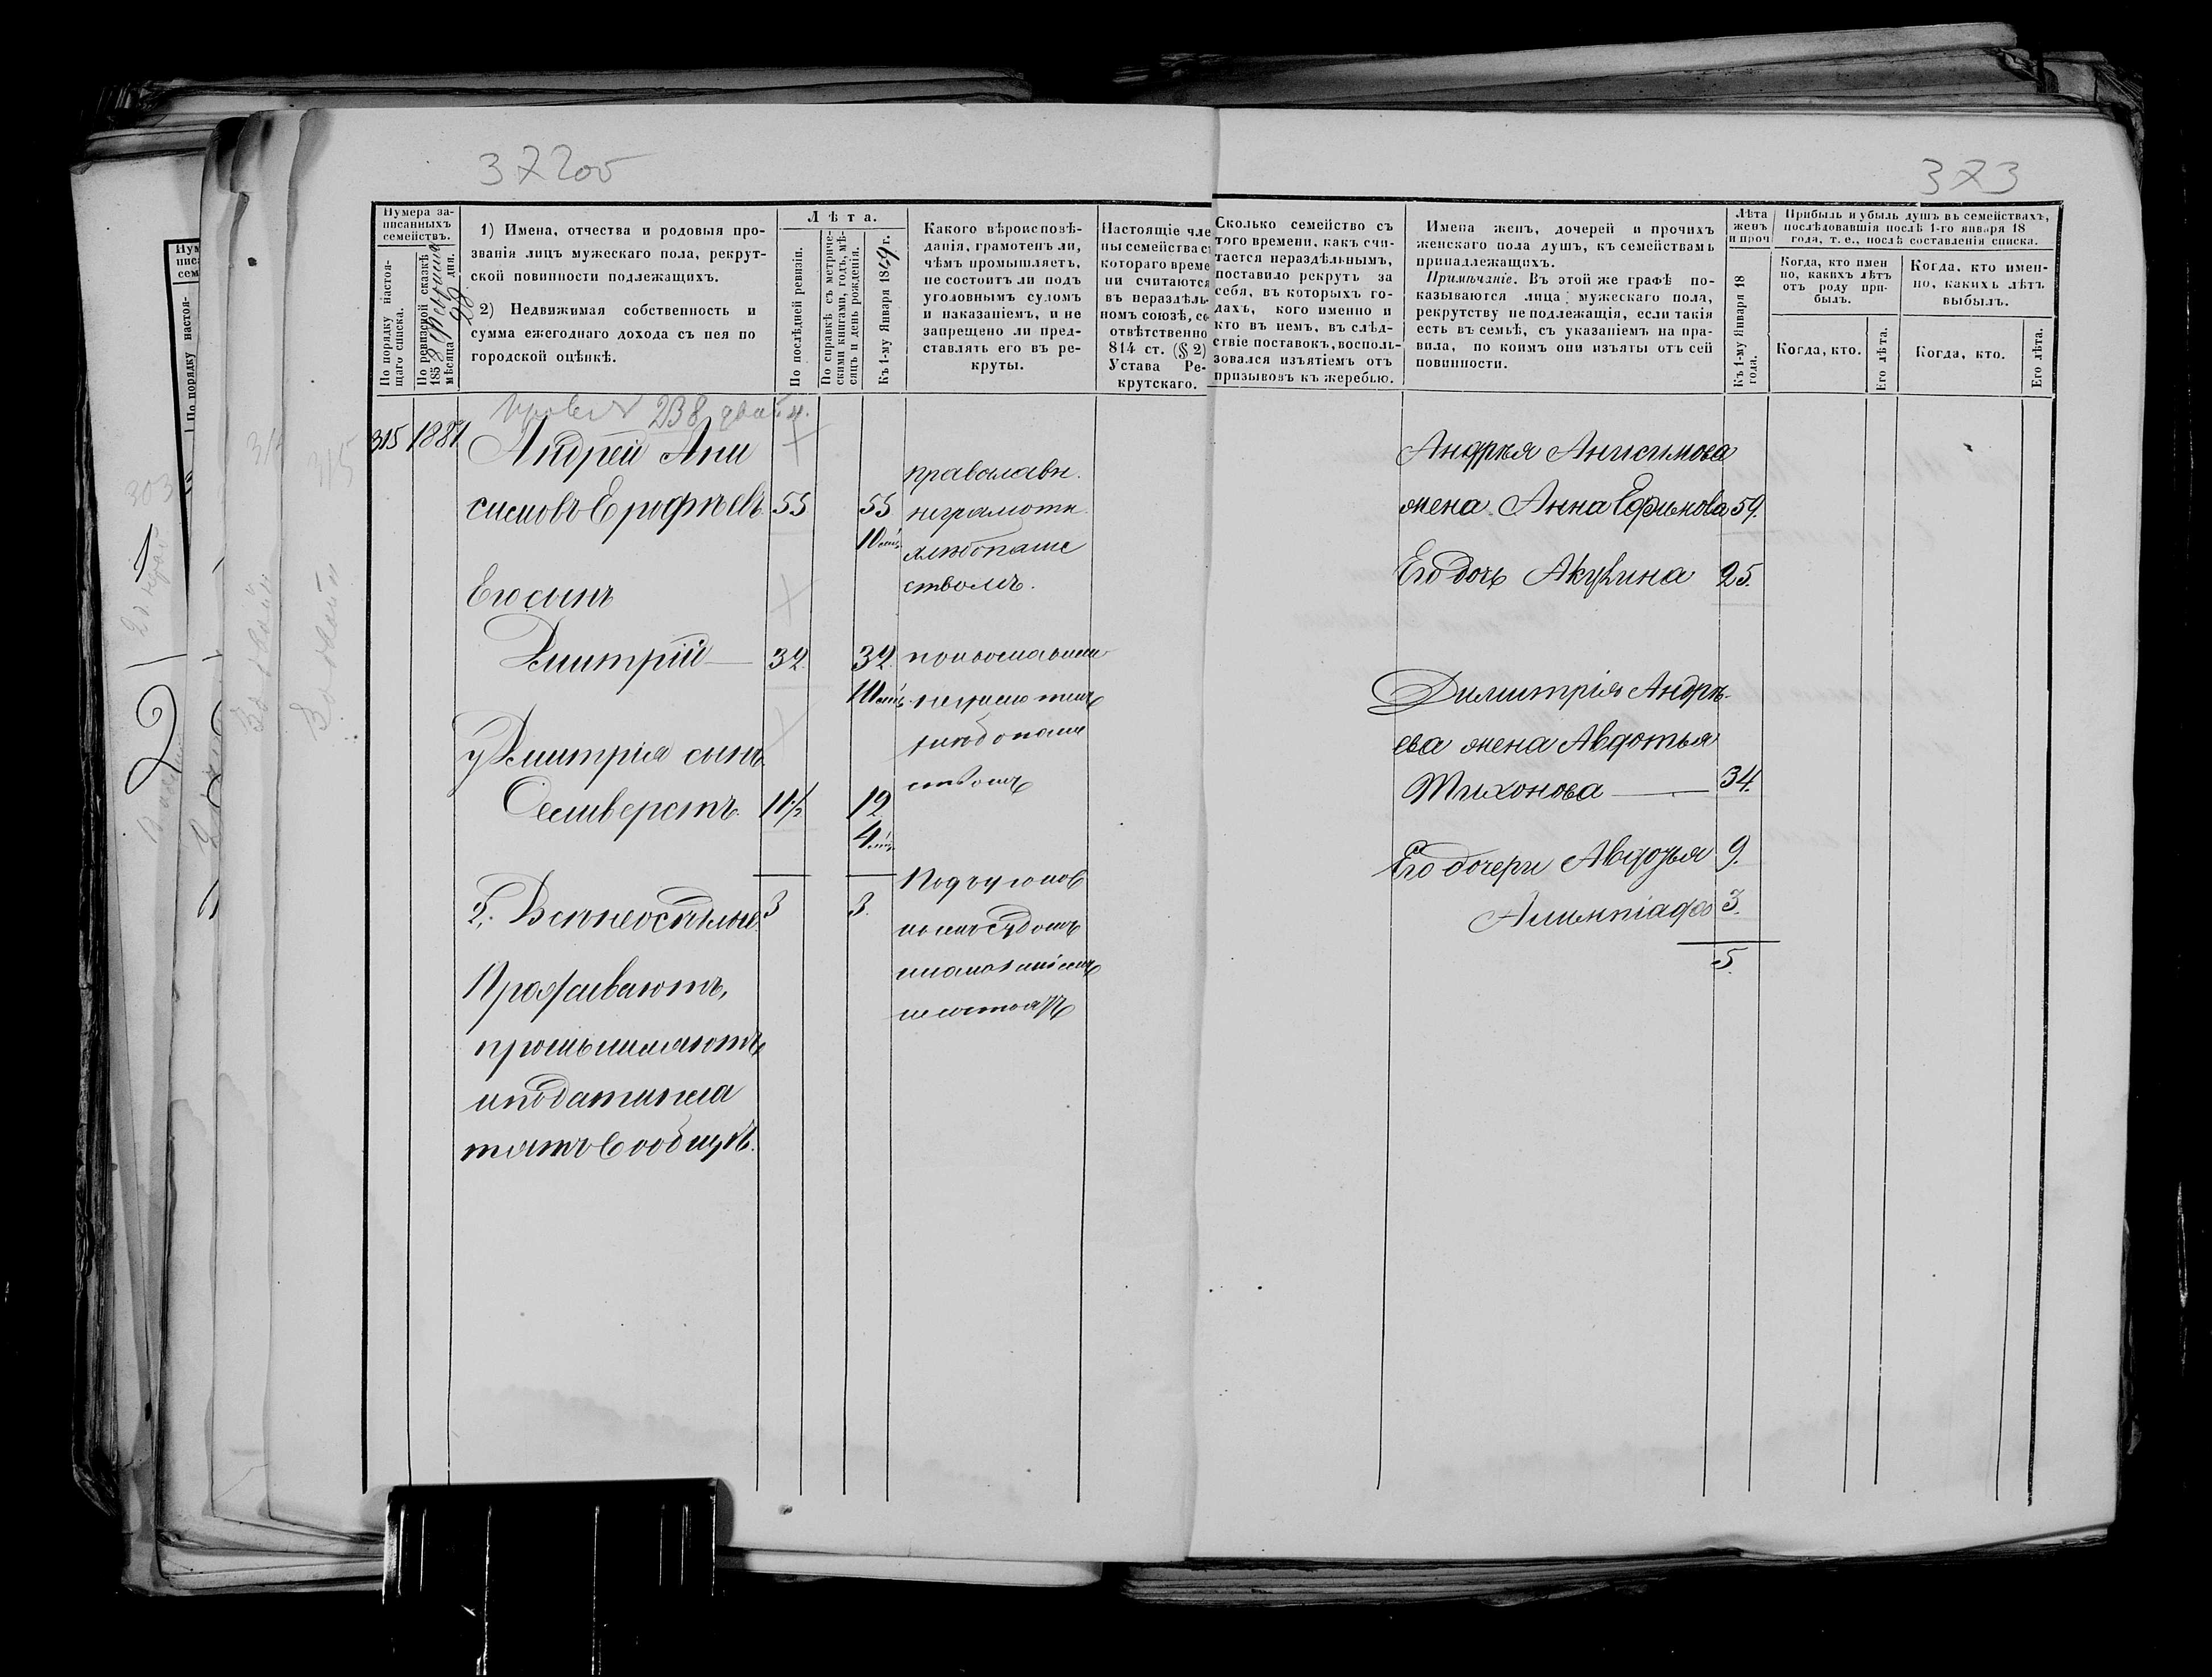 372 об
373
Нумера записанныхъ семействъ.
По порядку настоящаго списка.
По ревизской сказкѣ 1858 Февраля мѣсяца 28 дня.
1) Имена, отчества и родовыя прозванія лицъ мужескаго пола, рекрутской повинности подлежащихъ.
2) Недвижимая собственность и сумма ежегоднаго дохода съ нея по городской оцѣнкѣ.
Лѣта.
По послѣдней ревизіи.
По справкѣ съ метрическими книгами, годъ, мѣсяцъ и день рожденія.
Къ 1-му Января 1859 г.
Какого вѣроисповѣданія, грамотенъ ли, чѣмъ промышляетъ, не состоитъ ли подъ уголовнымъ судомъ и наказаніемъ, и не запрещено ли представлять его въ рекруты.
Настоящіе чле
ны семейства с
котораго време
ни считаются
въ нераздѣль
номъ союзѣ, со
отвѣтственно
814 ст. (§ 2)
Устава Рекрутскаго.
Сколько семейство съ того времени, какъ считается нераздѣльнымъ, поставило рекрутъ за себя, въ которыхъ годахъ, кого именно и кто въ немъ, въ слѣдствіе поставокъ, воспользовался изъятіемъ отъ призывовъ къ жеребью.
Имена женъ, дочерей и прочихъ женскаго пола душъ, къ семействамъ принадлежащихъ.
Примѣчаніе. Въ этой же графѣ показываются лица мужескаго пола, рекрутству не подлежащія, если такія есть въ семьѣ, съ указаніемъ на правила, по коимъ они изъяты отъ сей повинности.
Лѣта женъ и проч
Къ 1-му Января 18 года.
Прибыль и убыль душъ въ семействахъ, послѣдовавшія послѣ 1-го января 18 года, т. е., послѣ составленія списка.
Когда, кто именно, какихъ лѣтъ отъ роду прибылъ.
Когда, кто именно, какихъ лѣтъ выбылъ.
Когда, кто.
Его лѣта.
Когда, кто.
Его лѣта.
238
315 1887 Андрей Ани
симовъ Ерофѣевъ 55 55
10 мѣс.
православн.
неграмотн.
хлѣбопаше
ствомъ.
Его сынъ
Дмитрій 32 32
10 мѣс.
православный
неграмотенъ
хлѣбопаше
ствомъ
у Дмитрія сынъ
Селиверстъ. 11½ 12
4 мѣс.
2; Всѣ неоспѣльне 3 3.
Подъ уголов
нымъ судомъ
и наказаніемъ
не состоятъ
Проживаютъ,
промышляютъ
и подати пла
тятъ вообще.
Андрея Анисимова
жена Анна Ефимова 59.
Его дочь Акулина 25.
Димитрія Андре
ева жена Авдотья
Тихонова 34.
Его дочери Авдотья 9.
Алимпіада 3.
5.
315